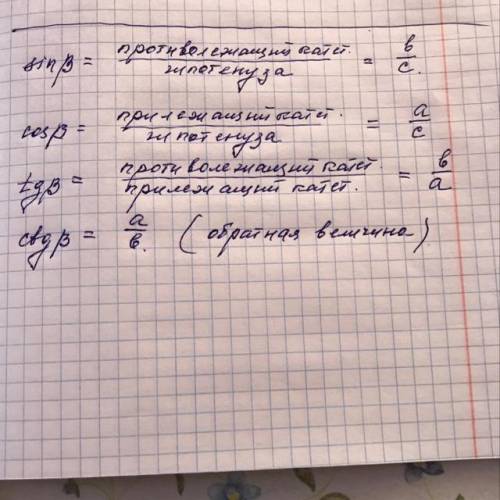 sinβ = противолежащий катет. / гипотенуза = b/c.
cosβ = прилежащий катет. / гипотенуза = a/c
tgβ = противолежащий катет. / прилежащий катет. = b/a
ctgβ = a/b. (обратная величина)